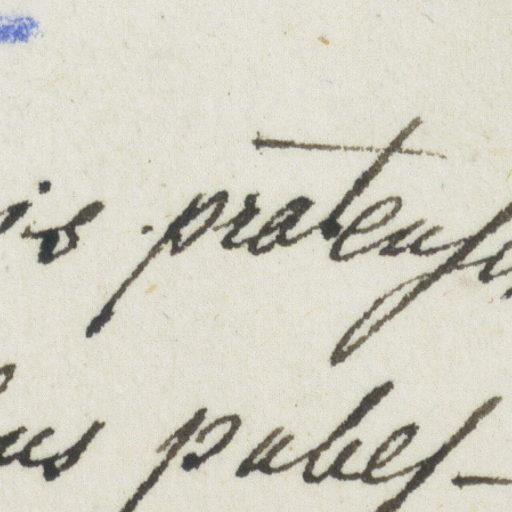 is pratens
us pubes-